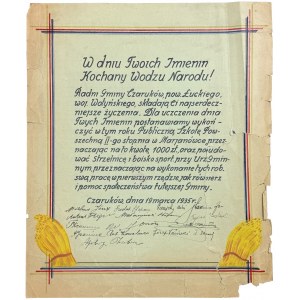 W dniu Twoich Imienin
Kochany Wodzu Narodu!
Radni Gminy Czaruków, pow. Łuckiego,
woj. Wołyńskiego, składają Ci najserdecz-
niejsze życzenia. Dla uczczenia dnia
Twych Imienin postanawiamy wykoń-
czyć w tym roku Publiczną Szkołę Pow-
szechną II-go stopnia w Marjanówce prze-
znaczając na to kwotę 1000 zł. oraz pobudo-
wać Strzelnicę i boisko sport. przy Urz. Gmin-
nym, przeznaczając na wykonanie tych rob.
swą pracę w pierwszym rzędzie, jak również
i pomoc społeczeństwa tutejszej Gminy.
Czaruków, dnia 19 marca 1935 r.